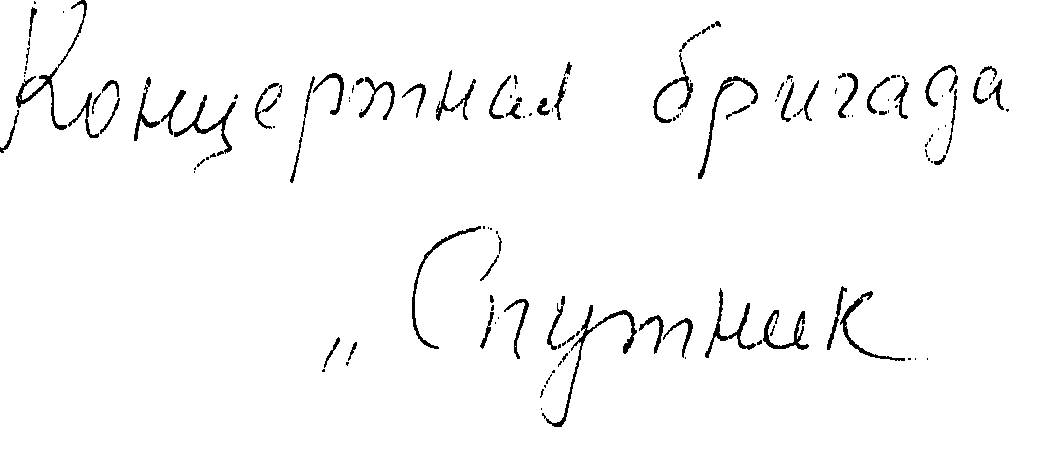 Концертная бригада
„Спутник